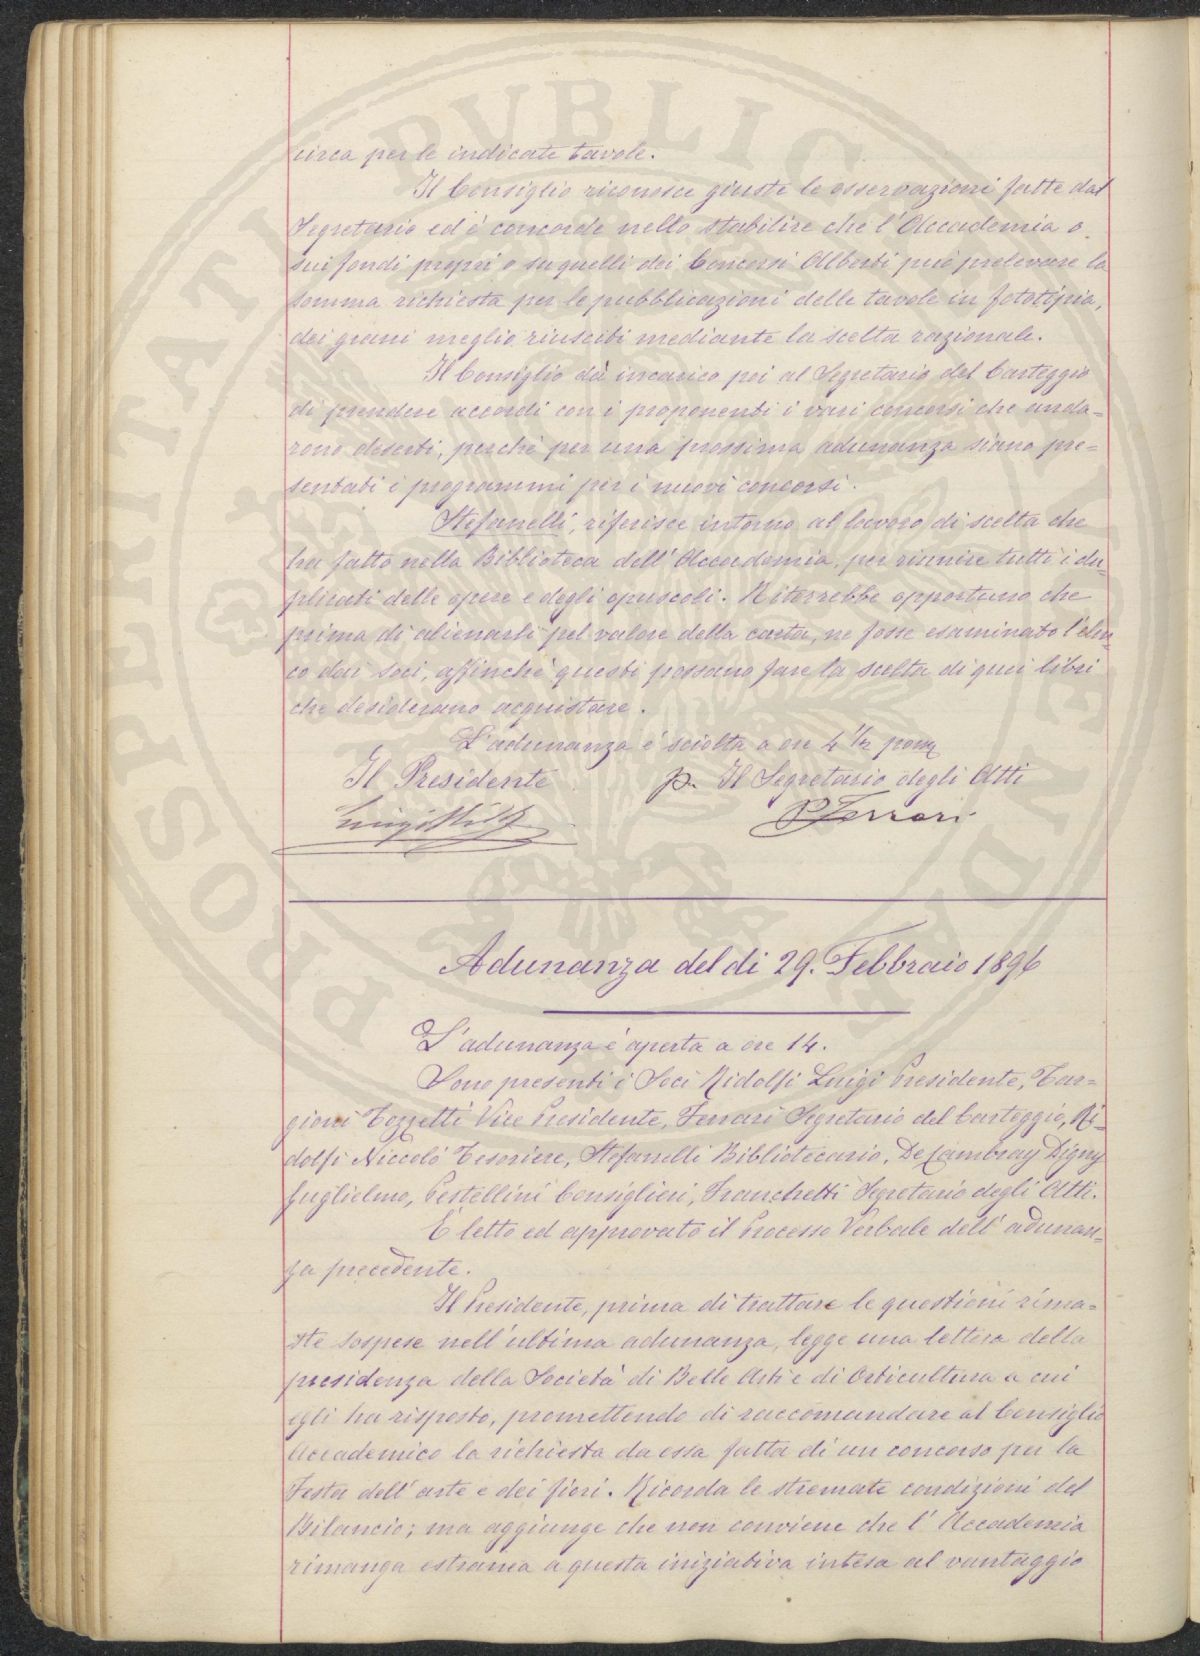 circa per le indicate tavole.
Il Consiglio riconosce giuste le osservazioni fatte dal
Segretario ed è concorde nello stabilire che l'Accademia o
sui fondi propri o su quelli dei Concorsi Alberti può prelevare la
somma richiesta per le pubblicazioni delle tavole in fototipia,
dei grani meglio riusciti mediante la scelta razionale.
Il Consiglio dà incarico poi al Segretario del Carteggio
di prendere accordi con i proponenti i vari concorsi che anda=
rono deserti, perchè per una prossima adunanza siano pre=
sentati i programmi per i nuovi concorsi.
Stefanelli, riferisce intorno al lavoro di scelta che
ha fatto nella Biblioteca dell'Accademia, per riunire tutti i du=
plicati delle opere e degli opuscoli. Riterrebbe opportuno che
prima di alienarli pel valore della carta, ne fosse esaminato l'elen=
co dai soci, affinchè questi possano fare la scelta di quei libri
che desiderano acquistare.
L'adunanza è sciolta a ore 4 1/2 pom
Il Presidente p. Il Segretario degli Atti
Luigi Ridolfi P Ferrari
Adunanza del dì 29. Febbraio 1896
L'adunanza è aperta a ore 14.
Sono presenti i Soci Ridolfi Luigi Presidente, Tar=
gioni Tozzetti Vice Presidente, Ferrari Segretario del Carteggio, Ri=
dolfi Niccolò Tesoriere, Stefanelli Bibliotecario, De Cambray Digny
Guglielmo, Pestellini Consiglieri, Franchetti Segretario degli Atti.
È letto ed approvato il Processo Verbale dell'adunan=
za precedente.
Il Presidente, prima di trattare le questioni rima=
ste sospese nell'ultima adunanza, legge una lettera della
presidenza della Società di Belle Arti e di Orticultura a cui
egli ha risposto, promettendo di raccomandare al Consiglio
Accademico la richiesta da essa fatta di un concorso per la
Festa dell'arte e dei fiori. Ricorda le stremate condizioni del
Bilancio; ma aggiunge che non conviene che l'Accademia
rimanga estranea a questa iniziativa intesa al vantaggio
PROSPERITATI PVBLICAE AVGENDAE